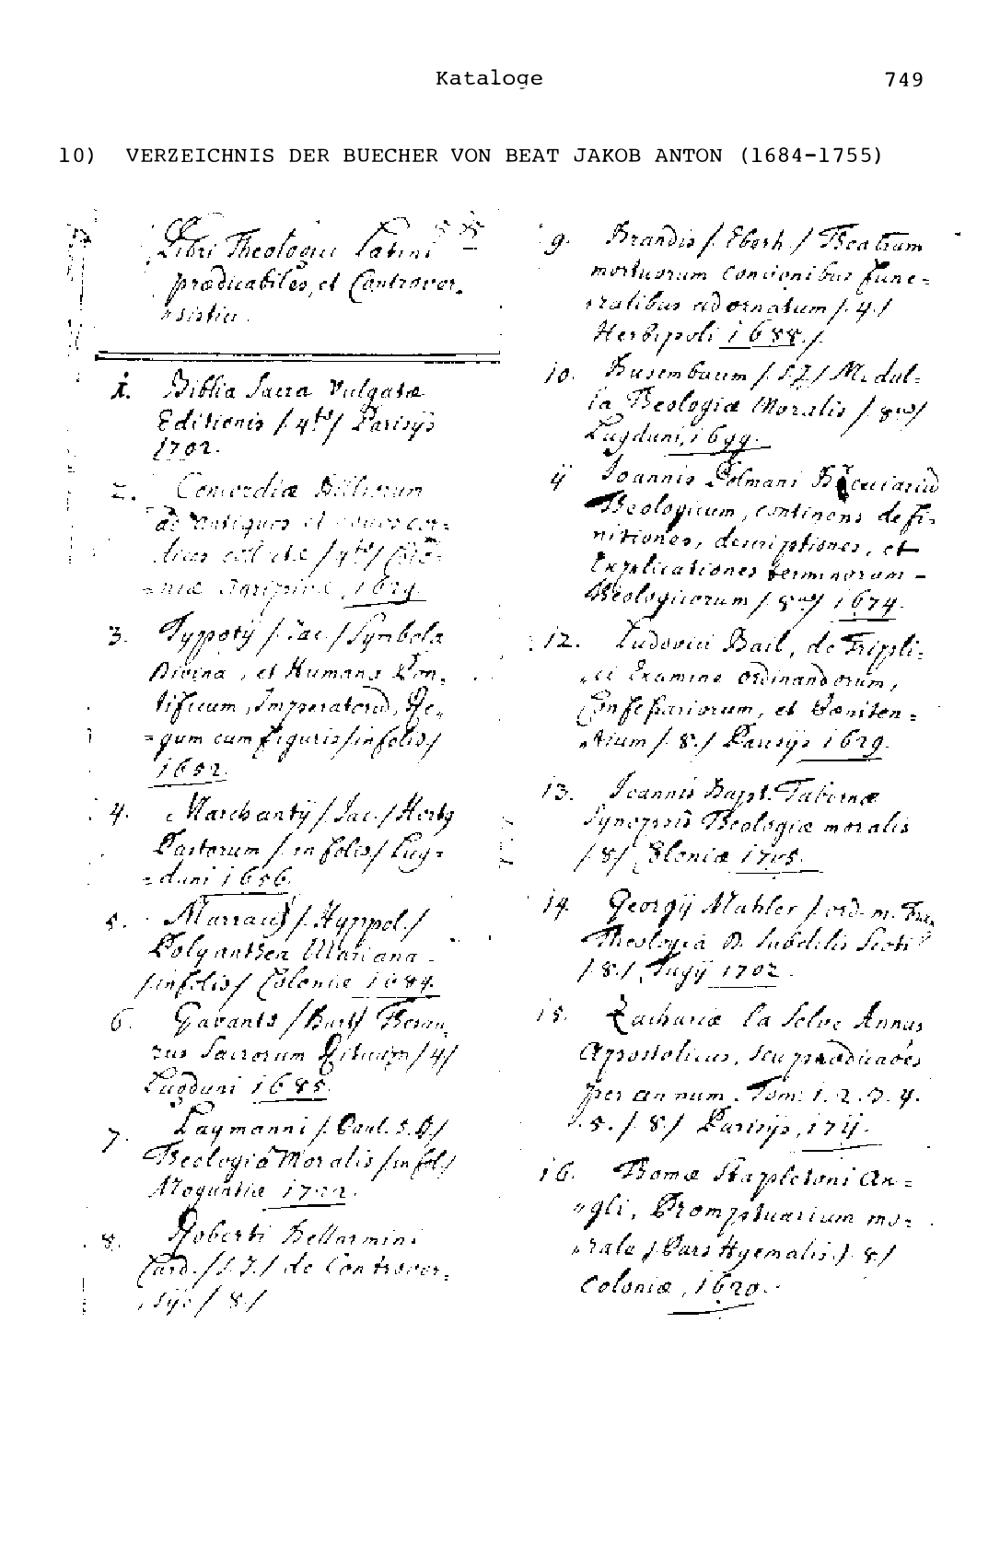 Kataloge 749
10) VERZEICHNIS DER BUECHER VON BEAT JAKOB ANTON (1684-1755)
Libri Theologici Latini
prædicabiles, et Controver,
sistici.
1. Biblia Sacra Vulgatæ
Editionis /. 4to / Parisÿs
1702.
2. Concordiæ Bibliorum
ad antiquos et novos co-
dices coll /4to/ Colo=
=niæ Agripinæ, 1629.
3. Typotÿ /. Jac. / Symbola
Divina, et Humana Pon,
tificum, Imperatorū, Re,
=gum cum figuris /in folio/
1652.
4. Marchantÿ / Jac. / Hortg
Pastorum /. in folio / Lug=
=duni 1656.
5. Marracij /. Hyppol. /
Polyanthea Mariana
/in folio / Coloniæ 1684.
6. Gavanto / Bart / Thesau,
rus Sacrorum Rituum / 4 /
Lugduni 1685.
7. Laymanni /. Paul. S.J. /
Theologia Moralis / in fol. /
Moguntiæ
8. Roberti Bellarmini
Card. / S.J. / de Controver,
sÿs / 8 /
9. Brandis /. Eberh. / Theatrum
mortuorum concionibus fune=
ralibus adornatum /. 4. /
Herbipoli 1688. /
10. Busembaum /. S.J. / Medul=
la Theologiæ Moralis / 8vo /
Lugduni, 1699.
11 Joannis Polmani Breviariū
Theologicum, continens defi-
nitiones, descriptiones, et
Explicationes terminorum -
Theologicorum /. 8vo / 1674.
12. Ludovici Bail, de Tripli=
ci Examine ordinandorum,
Confessariorum, et Pœniten=
tium /. 8. / Parisÿs 1629.
13. Joannis Bapt. Tabernæ
Synopsis Theologiæ moralis
/ 8 / Coloniæ 1705.
14. Georgÿ Mahler / ord. m.
Theologia D. Subtilis Scoti
/. 8. / Tugÿ 1702.
15. Zachariæ la Selve Annus
Apostolicus, seu prædicaões
per annum. Tom: 1. 2. 3. 4.
5. /. 8 / Parisÿs, 1711.
16. Thomæ Stapletoni An=
gli, Promptuarium mo=
rale / Pars Hyemalis. /. 8 /
Coloniæ, 1620.